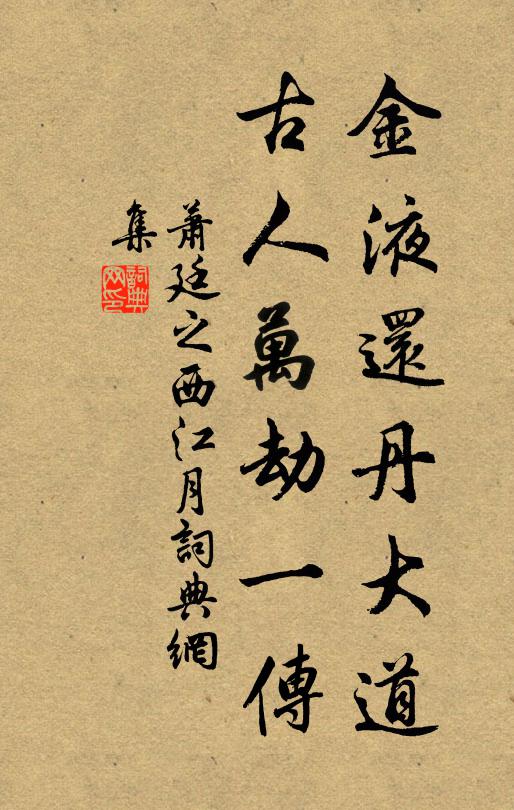 金液還丹大道
古人萬劫一傳
蕭廷之西江月詞典網
集
詞典
网印